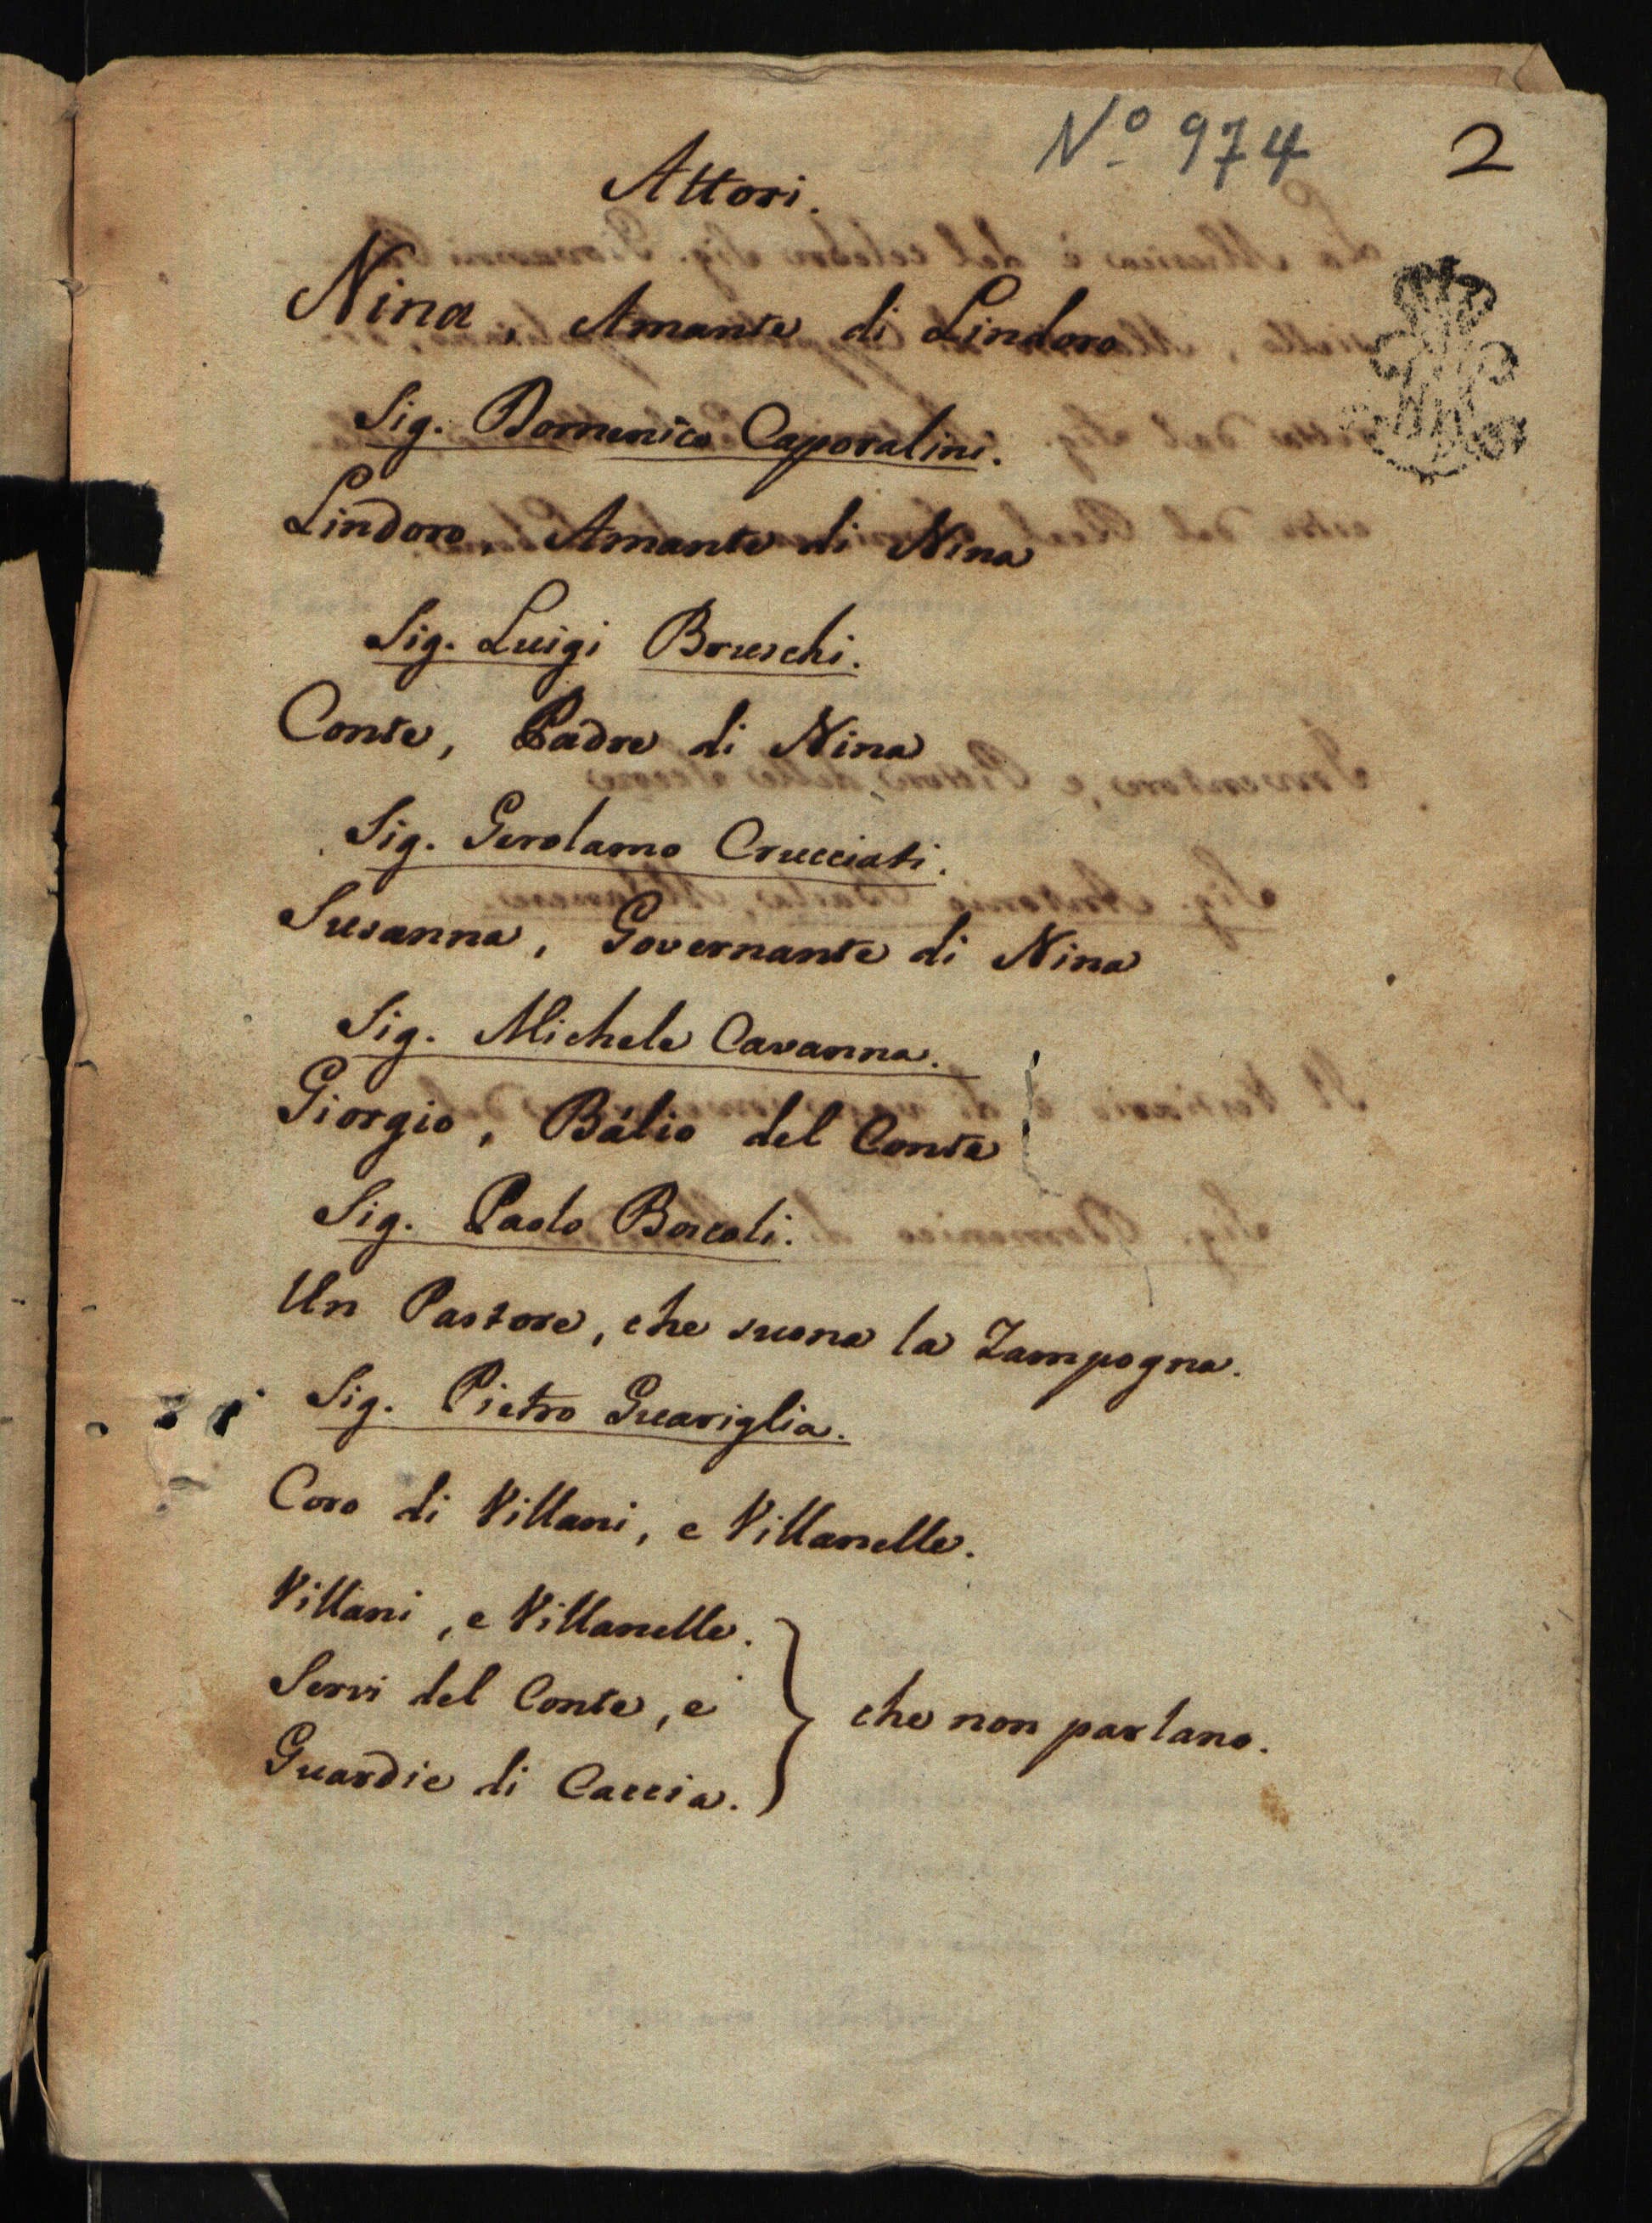 Nº 974
2
Attori.
Nina, Amante di Lindoro
Sig. Domenico Caporalini.
Lindoro, Amante di Nina
Sig. Luigi Bruschi.
Conte, Padre di Nina
Sig. Gerolamo Crucciati.
Susanna, Governante di Nina
Sig. Michele Cavanna.
Giorgio, Bálio del Conte
Sig. Paolo Boscoli.
Un Pastore, che suona la Zampogna.
Sig. Pietro Guariglia.
Coro di Villani, e Villanelle.
Villani, e Villanelle.
Servi del Conte, e
Guardie di Caccia.
che non parlano.